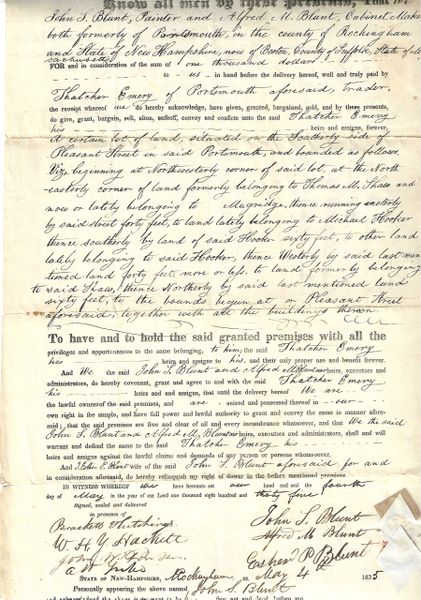 Know all men by these presents, That we
John S. Blunt, Painter and Alfred M. Blunt, Cabinet Make
both formerly of Portsmouth, in the county of Rockingham
and State of New Hampshire, now of Boston, County of Suffolk, State of M
sachusetts
FOR and in consideration of the sum of one thousand dollars
to us in hand before the delivery hereof, well and truly paid by
Thatcher Emery of Portsmouth aforesaid, trader,
the receipt whereof we do hereby acknowledge, have given, granted, bargained, sold, and by these presents,
do give, grant, bargain, sell, alien, enfeoff, convey and confirm unto the said Thatcher Emery
his heirs and assigns, forever,
A certain lot of land, situated on the Southerly side
Pleasant Street in said Portsmouth, and bounded as follows,
Viz, beginning at Northwesterly corner of said lot, at the North
easterly corner of land formerly belonging to Thomas M. Shaw and
now or lately belonging to Mugridge, thence running easterly
by said street forty feet, to land lately belonging to Michael Hooker
thence southerly by land of said Hooker sixty feet, to other land
lately belonging to said Hooker, thence Westerly by said last men
tioned land forty feet, more or less, to land formerly belonging
to said Shaw, thence Northerly by said last mentioned land
sixty feet, to the bounds begun at on Pleasant Street
aforesaid, together with all the buildings thereon.
To have and to hold the said granted premises with all the
privileges and appurtenances to the same belonging, to him, the said Thatcher Emery
his heirs and assigns to his and their only proper use and benefit forever.
And We the said John S. Blunt and Alfred M. Blunt our heirs, executors and
administrators, do hereby covenant, grant and agree to and with the said Thatcher Emery
his heirs and assigns, that until the delivery hereof We are
the lawful owners of the said premises, and are seized and possessed thereof in our
own right in fee simple, and have full power and lawful authority to grant and convey the same in manner afore-
said; that the said premises are free and clear of all and every incumbrance whatsoever, and that We the said
John S. Blunt and Alfred M. Blunt our heirs, executors and administrators, shall and will
warrant and defend the same to the said Thatcher Emery his
heirs and assigns against the lawful claims and demands of any person or persons whomsoever.
And I P. Blunt wife of the said John S. Blunt aforesaid for and
in consideration aforesaid, do hereby relinquish my right of dower in the before mentioned premises.
IN WITNESS WHEREOF We have hereunto set our hand and seal the fourth
day of May in the year of our Lord one thousand eight hundred and thirty five
Signed, sealed and delivered
in presence of
Brackett Hutchings
W. H. Y. Hackett
John S. Blunt
Alfred M Blunt
P Blunt
STATE OF NEW-HAMPSHIRE, Rockingham ss. May 4th 1835
Personally appearing the above named John S. Blunt